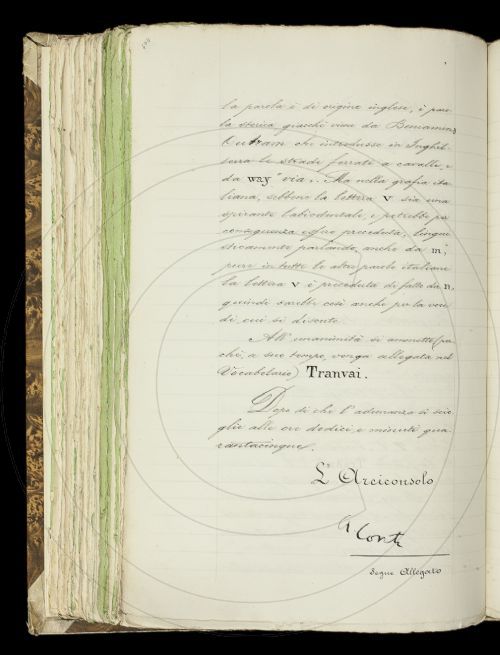 la parola è di origine inglese, è paro-
la storica giacchè viene da Beniamino
Outram che introdusse in Inghil-
terra le strade ferrate a cavalli, e
da "way" via... Ma nella grafia ita-
liana, sebbene la lettera v sia una
spirante labiodentale, e potrebbe per
conseguenza essere preceduta, lingui-
sticamente parlando, anche da m,
pure in tutte le altre parole italiane
la lettera v è preceduta di fatto da n,
quindi sarebbe così anche per la voce
di cui si discute.
All'unanimità si ammette (per-
chè, a suo tempo, venga allegata nel
Vocabolario) Tranvai.
Dopo di che l'adunanza si scio-
glie alle ore dodici e minuti qua-
rantacinque.
L'Arciconsolo
Conti
Segue Allegato